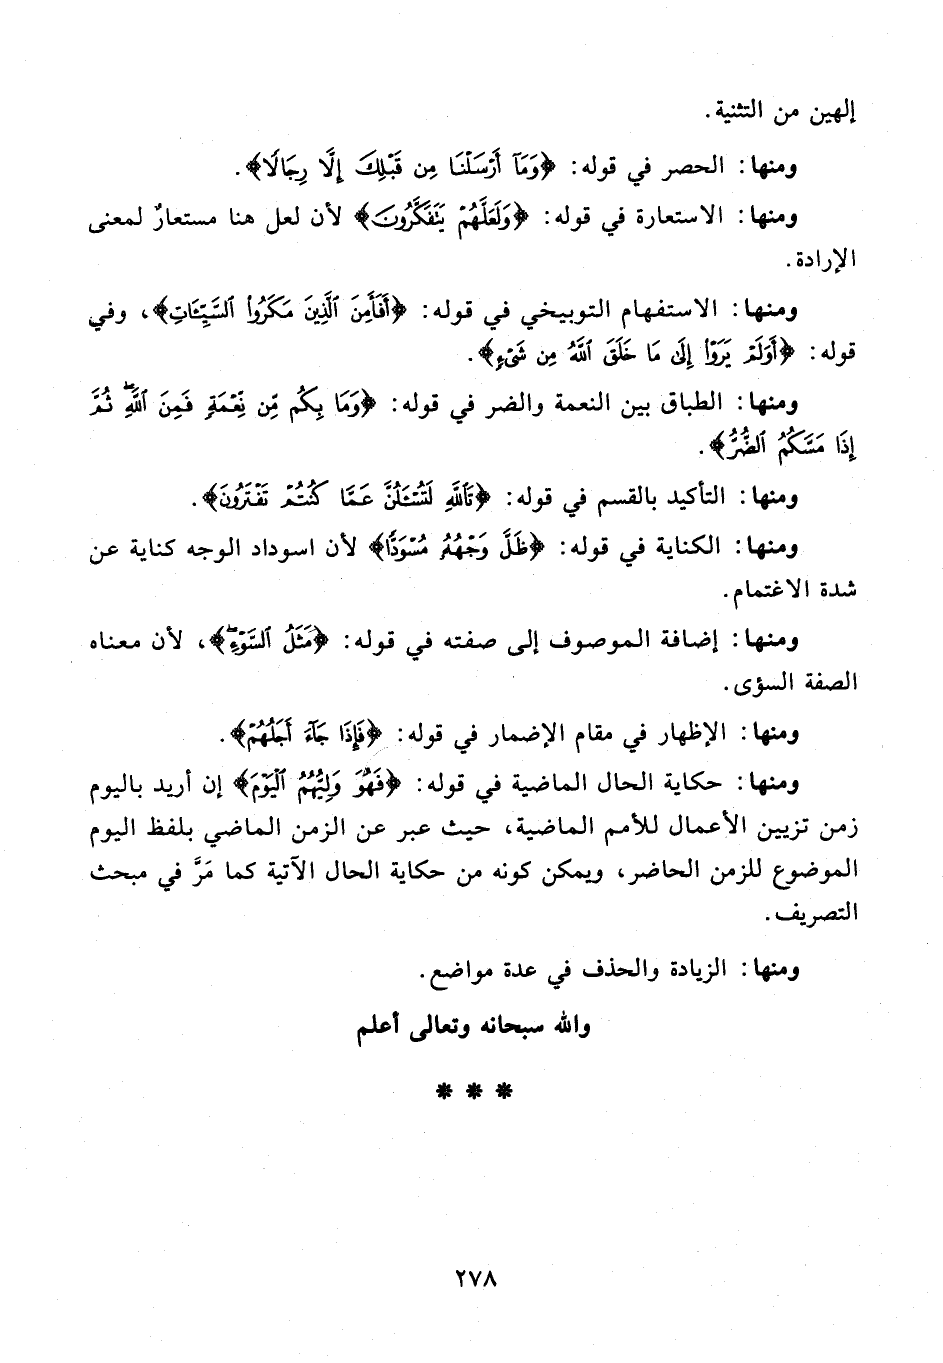 إلهين من التثنية.
ومنها: الحصر في قوله: ﴿وَمَآ أَرْسَلْنَا مِن قَبْلِكَ إِلَّا رِجَالًا﴾.
ومنها: الاستعارة في قوله: ﴿وَلَعَلَّهُمْ يَتَفَكَّرُونَ﴾ لأن لعل هنا مستعارٌ لمعنى
الإرادة.
ومنها: الاستفهام التوبيخي في قوله: ﴿أَفَأَمِنَ ٱلَّذِينَ مَكَرُواْ ٱلسَّيِّـَٔاتِ﴾، وفي
قوله: ﴿أَوَلَمْ يَرَوْاْ إِلَىٰ مَا خَلَقَ ٱللَّهُ مِن شَىْءٍ﴾.
ومنها: الطباق بين النعمة والضر في قوله: ﴿وَمَا بِكُم مِّن نِّعْمَةٍ فَمِنَ ٱللَّهِۖ ثُمَّ
إِذَا مَسَّكُمُ ٱلضُّرُّ﴾.
ومنها: التأكيد بالقسم في قوله: ﴿تَٱللَّهِ لَتُسْـَٔلُنَّ عَمَّا كُنتُمْ تَفْتَرُونَ﴾.
ومنها: الكناية في قوله: ﴿ظَلَّ وَجْهُهُۥ مُسْوَدًّا﴾ لأن اسوداد الوجه كناية عن
شدة الاغتمام.
ومنها: إضافة الموصوف إلى صفته في قوله: ﴿مَثَلُ ٱلسَّوْءِۖ﴾، لأن معناه
الصفة السؤى.
ومنها: الإظهار في مقام الإضمار في قوله: ﴿فَإِذَا جَآءَ أَجَلُهُمْ﴾.
ومنها: حكاية الحال الماضية في قوله: ﴿فَهُوَ وَلِيُّهُمُ ٱلْيَوْمَ﴾ إن أريد باليوم
زمن تزيين الأعمال للأمم الماضية، حيث عبر عن الزمن الماضي بلفظ اليوم
الموضوع للزمن الحاضر، ويمكن كونه من حكاية الحال الآتية كما مَرَّ في مبحث
التصريف.
ومنها: الزيادة والحذف في عدة مواضع.
والله سبحانه وتعالى أعلم
* * *
٢٧٨